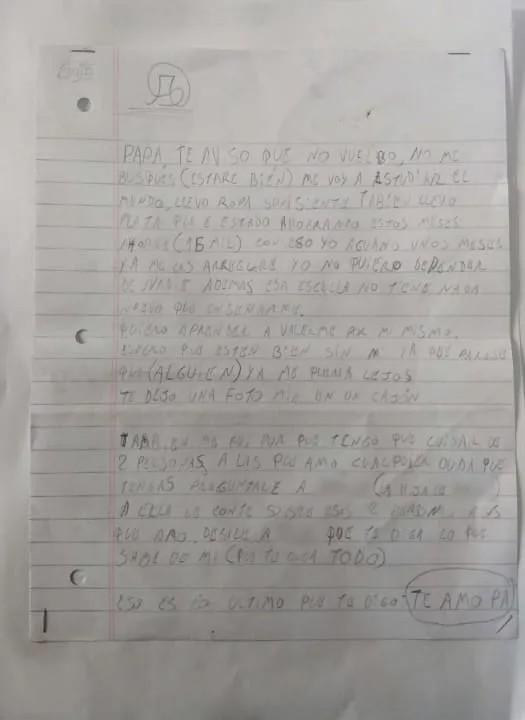 PAPA, TE AVISO QUE NO VUELBO, NO ME
BUSQUES (ESTARE BIEN) ME VOY A ESTUDIAR EL
MUNDO, LLEVO ROPA SUFISIENTE TANIEN LLEVO
PLATA QUE E ESTADO AHORRANDO ESTOS MESES
(15 MIL) CON ESO YO AGUANO UNOS MESES
YA ME LAS ARREGLARE YO NO QUIERO DEPENDER
DE NADIE ADEMAS ESA ESCUELA NO TENE NADA
NUEVO QUE ENSEÑARME.
QUIERO APRENDER A VALERME POR MI MISMO.
ESPERO QUE ESTEN BIEN SIN MI YA QUE PARESE
QUE (ALGUIEN) YA ME QUERIA LEJOS
TE DEJO UNA FOTO MIA EN UN CAJÓN
TAMBIEN ME FUI POR QUE TENGO QUE CUIDAR DE
2 PERSONAS, A LAS QUE AMO CUALQUIER DUDA QUE
TENGAS PREGUNTALE A (LA HIJA DE )
A ELLA LE CONTE SOBRE ESAS 2 A LAS
QUE AMO, DESILE A QUE TE DIGA LO QUE
SABE DE MI (QUE TE DIGA TODO)
ESO ES LO ULTIMO QUE TE DIGO TE AMO PA